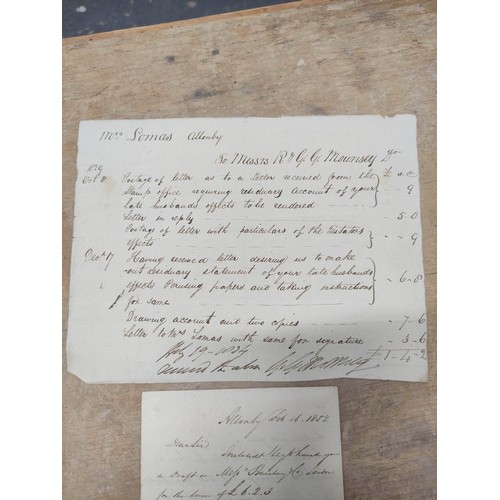 Mrs Lomas Allonby
To Messrs R & G. G. Mounsey Dr
Oct 8 Postage of letter as to a Letter received from the £ s. d
Stamp office requiring residuary account of your
late husbands effects to be rendered 9
Letter in reply 5.0
Postage of letter with particulars of the Testators
effects 9
Decr 17 Having received letter desiring us to make
out residuary statement of your late husbands
effects Perusing papers and taking instructions 6-8
for same
Drawing account and two copies 7-6
Letter to Mrs Lomas with same for signature 3-6
£1-4-2
Allonby Feb 16. 1852
Dear Sir
you
a Draft on Messrs
for the sum of £6.2.3